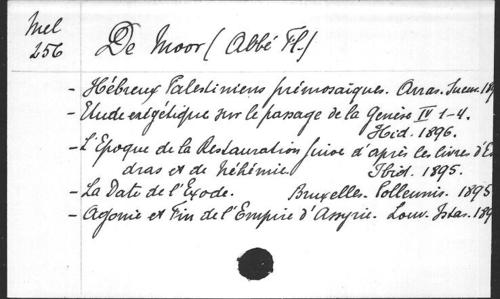 Mel
256
De Moor (Abbé Fl.)
- Hébreux Palestiniens prémosaïques. Arras. Sueur. 18
- Etude exégétique sur le passage de la Genèse IV 1-4.
Ibid. 1896.
- L'Epoque de la Restauration juive d'après les livres d'Es
dras et de Néhémie. Ibid. 1895.
- La Date de l'Exode. Bruxelles. Polleunis. 1895
- Agonie et Fin de l'Empire d'Assyrie. Louv. Istas. 189